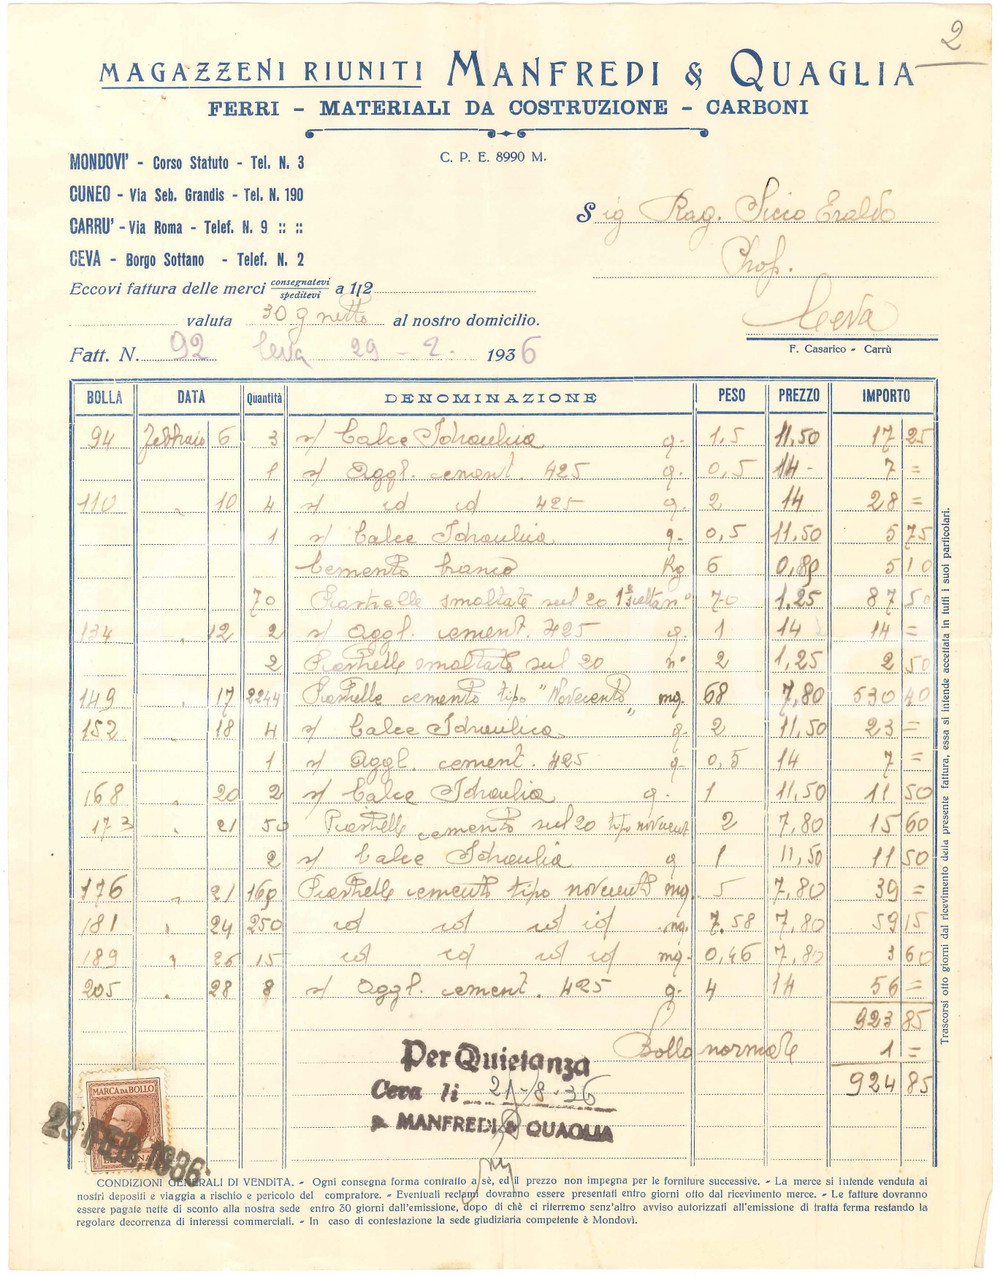 2
MAGAZZENI RIUNITI MANFREDI & QUAGLIA
FERRI - MATERIALI DA COSTRUZIONE - CARBONI
C. P. E. 8990 M.
MONDOVI' - Corso Statuto - Tel. N. 3
CUNEO - Via Seb. Grandis - Tel. N. 190
CARRU' - Via Roma - Telef. N. 9 :: ::
CEVA - Borgo Sottano - Telef. N. 2
Sig Rag. Sicio Eraldo
Prof.
Ceva
Eccovi fattura delle merci consegnatevi speditevi a 1/2
valuta 30 g netto al nostro domicilio.
F. Casarico - Carrù
Fatt. N. 92 Ceva 29 - 2. 1936
BOLLA DATA Quantità DENOMINAZIONE PESO PREZZO IMPORTO
94 Febbraio 6 3 s/ Calce Idraulica q. 1,5 11,50 17 25
1 s/ Aggl. cement. 425 q. 0,5 14- 7 =
110 " 10 4 s/ id id 425 q. 2 14 28 =
1 s/ Calce Idraulica q. 0,5 11,50 5 75
Cemento bianco Kg 6 0,85 5 10
70 Piastrelle smaltate sul 20 1ª scelta n° 70 1,25 87 50
134 " 12 2 s/ Aggl. cement. 425 q. 1 14 14 =
2 Piastrelle smaltate sul 20 n° 2 1,25 2 50
149 " 17 2244 Piastrelle cemento tipo "Novecento" mq. 68 7,80 530 40
152 " 18 4 s/ Calce Idraulica q. 2 11,50 23 =
1 s/ Aggl. cement. 425 q. 0,5 14 7 =
168 " 20 2 s/ Calce Idraulica q. 1 11,50 11 50
173 " 21 50 Piastrelle cemento sul 20 tipo novecent 2 7,80 15 60
2 s/ Calce Idraulica q 1 11,50 11 50
176 " 21 168 Piastrelle cemento tipo novecento mq. 5 7,80 39 =
181 " 24 250 id id id id mq. 7.58 7,80 59 15
189 " 26 15 id id id id mq. 0,46 7,80 3 60
205 " 28 8 s/ Aggl. cement. 425 q. 4 14 56 =
923 85
Bollo normale 1 =
924 85
Per Quietanza
Ceva li 21-8-36
p. MANFREDI & QUAGLIA
MARCA DA BOLLO
29 FEB. 1936
CONDIZIONI GENERALI DI VENDITA. - Ogni consegna forma contratto a sè, ed il prezzo non impegna per le forniture successive. - La merce si intende venduta ai
nostri depositi e viaggia a rischio e pericolo del compratore. - Eventuali reclami dovranno essere presentati entro giorni otto dal ricevimento merce. - Le fatture dovranno
essere pagate nette di sconto alla nostra sede entro 30 giorni dall'emissione, dopo di chè ci riterremo senz'altro avviso autorizzati all'emissione di tratta ferma restando la
regolare decorrenza di interessi commerciali. - In caso di contestazione la sede giudiziaria competente è Mondovì.
Trascorsi otto giorni dal ricevimento della presente fattura, essa si intende accettata in tutti i suoi particolari.